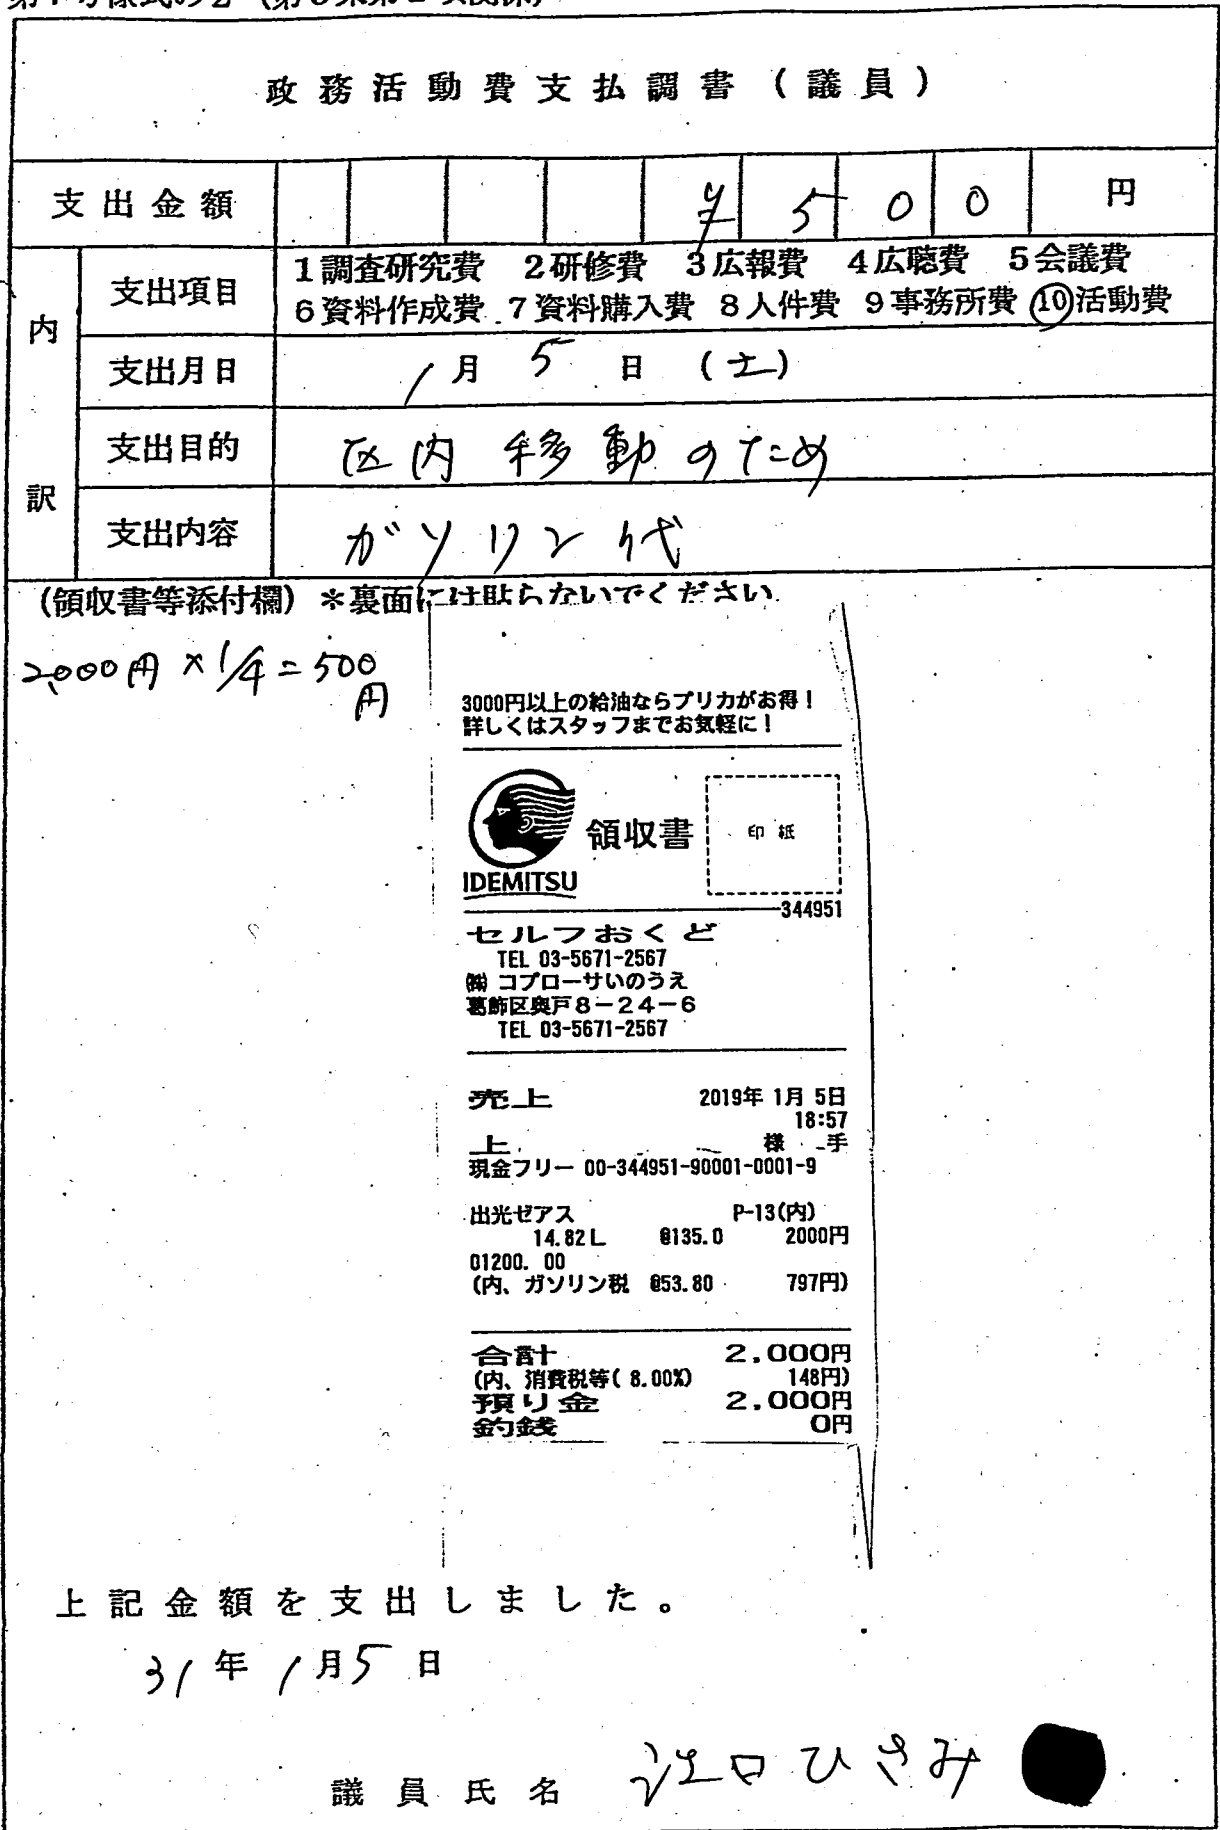 政務活動費支払調書（議員）
支出金額 ¥500 円
内訳
支出項目 1調査研究費 2研修費 3広報費 4広聴費 5会議費
6資料作成費 7資料購入費 8人件費 9事務所費 ⑩活動費
支出月日 1月5日（土）
支出目的 区内移動のため
支出内容 ガソリン代
（領収書等添付欄）＊裏面には貼らないでください
2,000円×1/4=500円
3000円以上の給油ならプリカがお得！
詳しくはスタッフまでお気軽に！
領収書 印紙
IDEMITSU
344951
セルフおくど
TEL 03-5671-2567
㈱ コプローサいのうえ
葛飾区奥戸8-24-6
TEL 03-5671-2567
売上 2019年 1月 5日
18:57
上 様 手
現金フリー 00-344951-90001-0001-9
出光ゼアス P-13(内)
14.82L @135.0 2000円
01200.00
(内、ガソリン税 @53.80 797円)
合計 2,000円
(内、消費税等( 8.00%) 148円)
預り金 2,000円
釣銭 0円
上記金額を支出しました。
31年1月5日
議員氏名 江口ひさみ